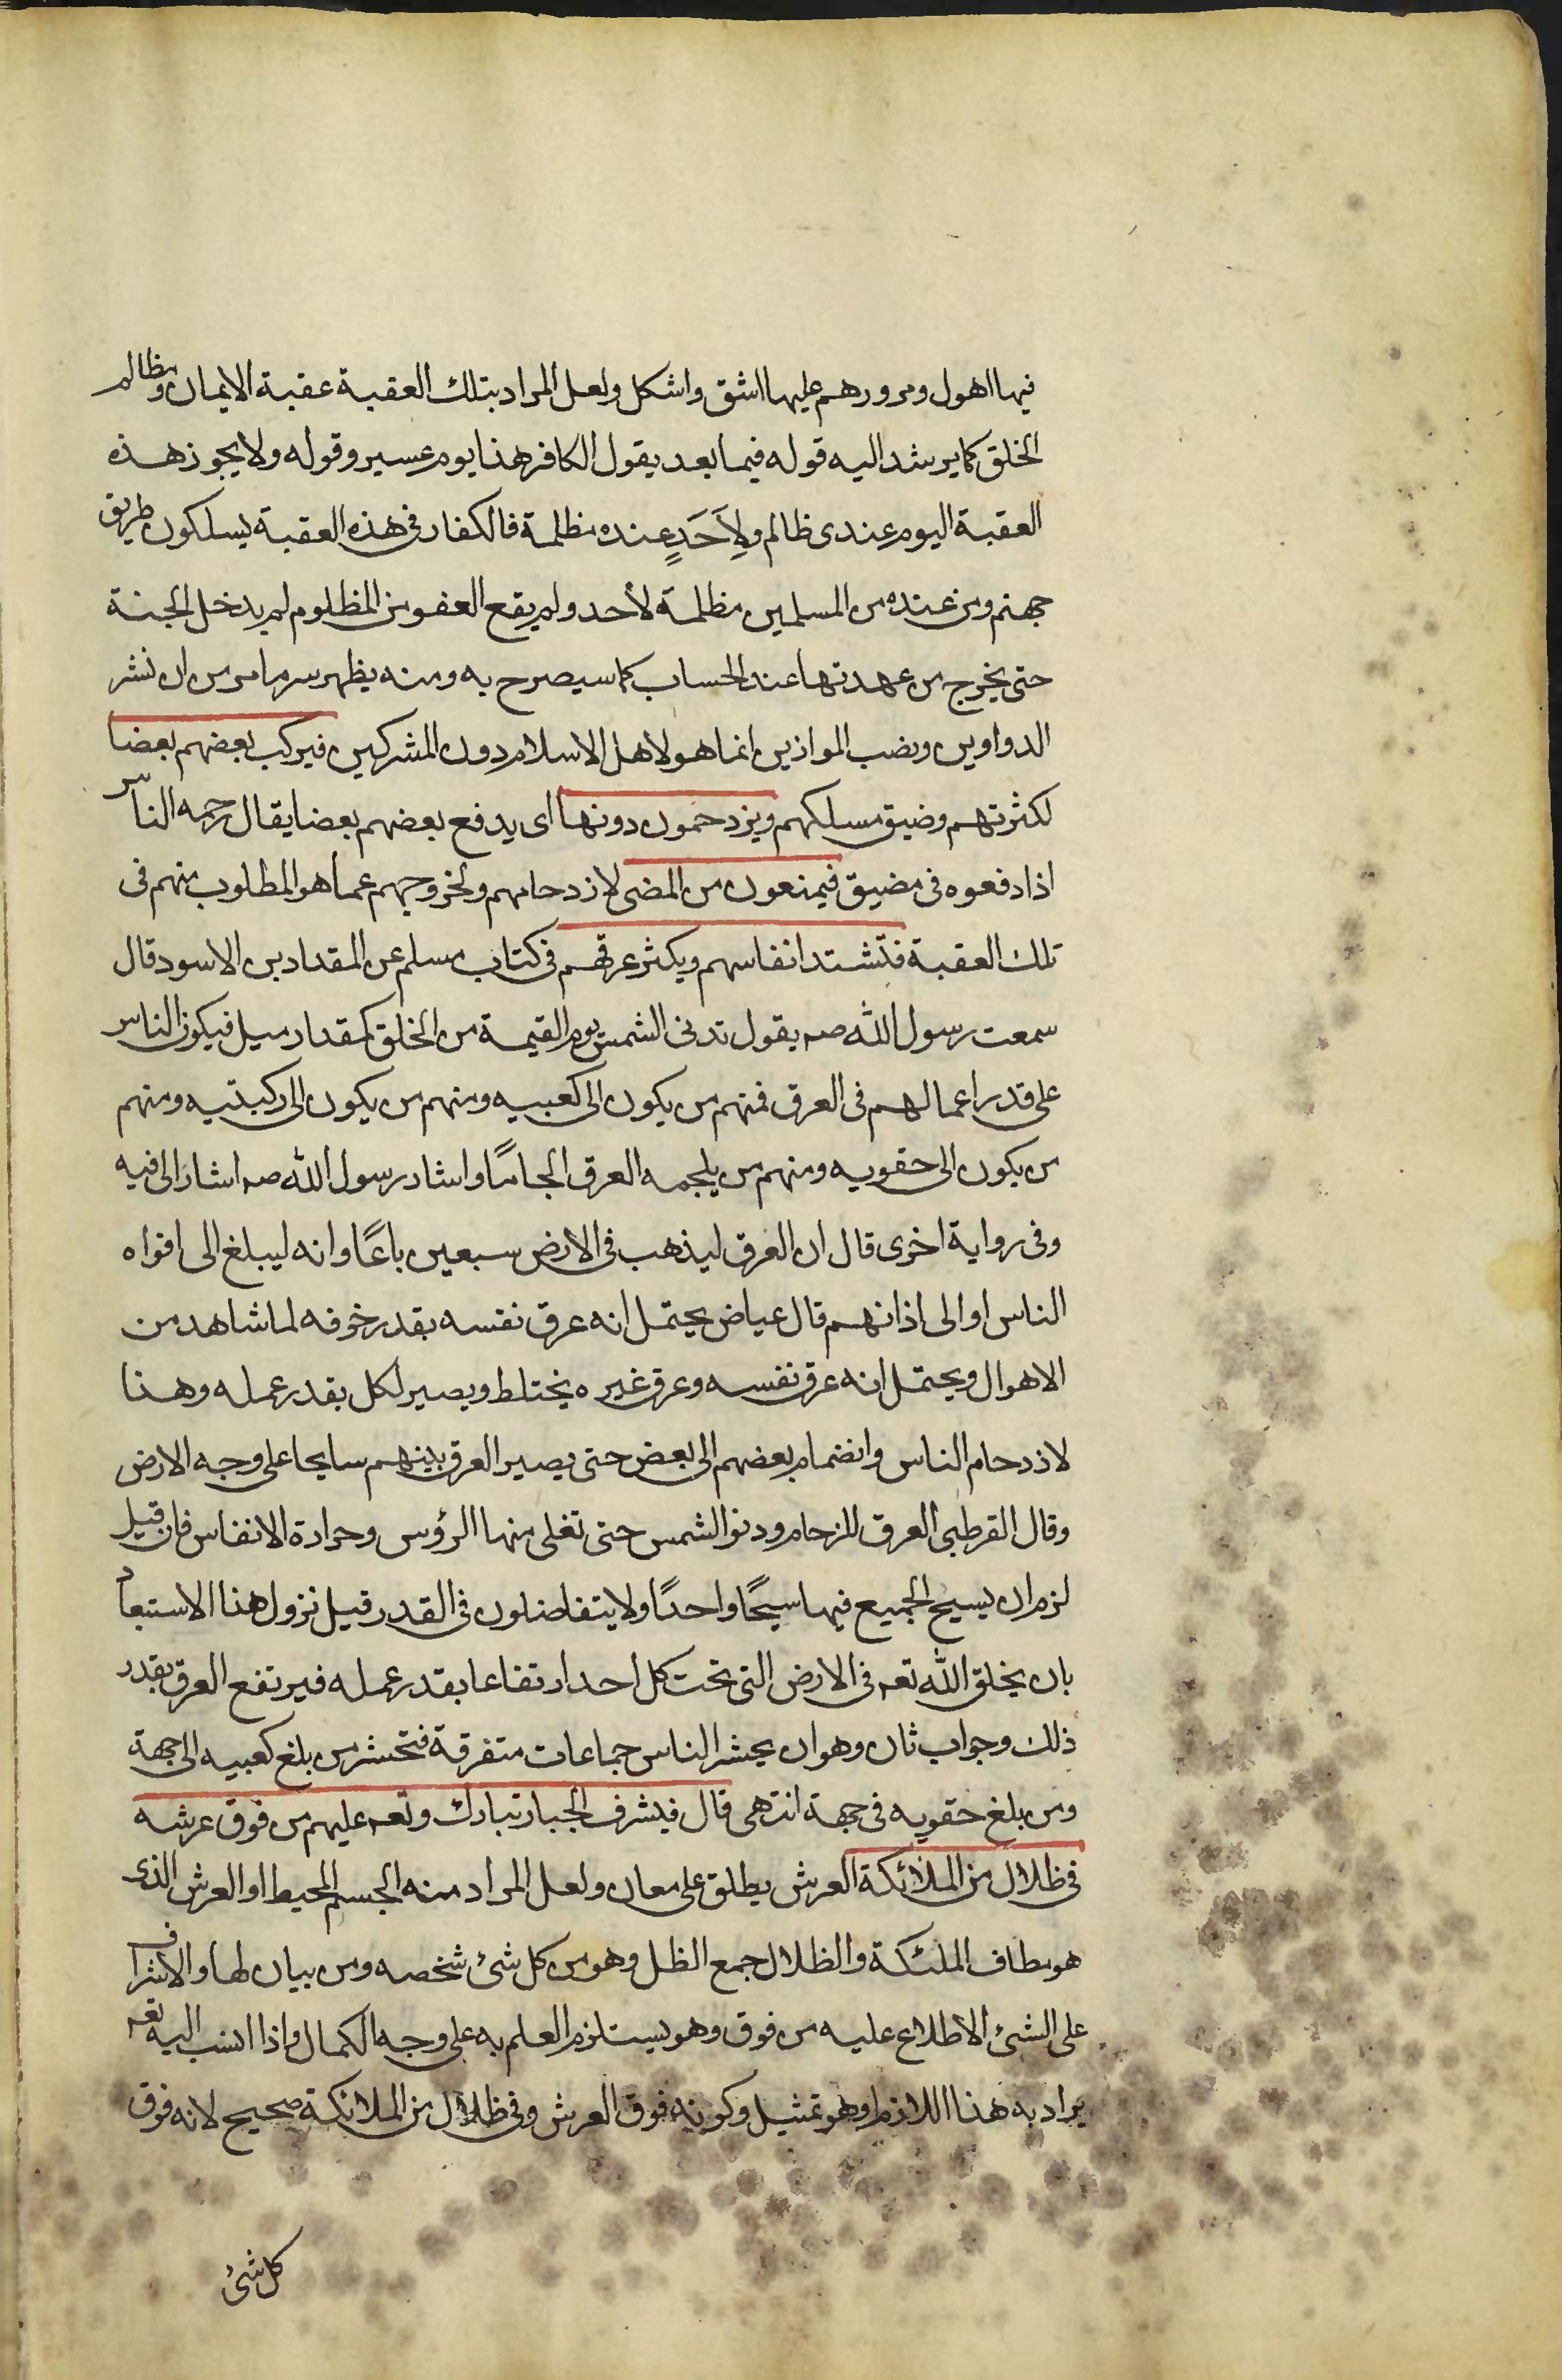 فيها اهول ومرورهم عليها اشق واشكل ولعل المراد بتلك العقبة عقبة الايمان ومظالم
الخلق كما يرشد اليه قوله فيما بعد يقول الكافر هذا يوم عسير وقوله ولا يجوز هذه
العقبة اليوم عندى ظالم ولِاَحَدٍ عنده مظلمة فالكفار فى هذه العقبة يسلكون طريق
جهنم ومن عنده من المسلمين مظلمة لأحد ولم يقع العفو من المظلوم لم يدخل الجنة
حتى يخرج من عهدتها عند الحساب كما سيصرح به ومنه يظهر سر ما مر من ان نشر
الدواوين ونصب الموازين انما هو لاهل الاسلام دون المشركين فيركب بعضهم بعضا
لكثرتهم وضيق مسلكهم ويزدحمون دونها اى يدفع بعضهم بعضا يقال زحمه الناس
اذا دفعوه فى مضيق فيمنعون من المضى لازدحامهم ولخروجهم عما هو المطلوب منهم فى
تلك العقبة فتشتد انفاسهم ويكثر عرقهم فى كتاب مسلم عن المقداد بن الاسود قال
سمعت رسول الله صه يقول تدنى الشمس يوم القيمة من الخلق كمقدار ميل فيكون الناس
على قدر اعمالهم فى العرق فمنهم من يكون الى كعبيه ومنهم من يكون الى ركبتيه ومنهم
من يكون الى حقويه ومنهم من يلجمه العرق الجامًا واشار رسول الله صه اشار الى فيه
وفى رواية اخرى قال ان العرق ليذهب فى الارض سبعين باعًا وانه ليبلغ الى افواه
الناس او الى اذانهم قال عياض يحتمل انه عرق نفسه بقدر خوفه لما شاهد من
الاهوال ويحتمل انه عرق نفسه وعرق غيره يختلط ويصير لكل بقدر عمله وهذا
لازدحام الناس وانضمام بعضهم الى بعض حتى يصير العرق بينهم سايحا على وجه الارض
وقال القرطبى العرق للزحام ودنو الشمس حتى تغلى منها الرؤس وحرارة الانفاس فان قيل
لزم ان يسيح الجميع فيها سيحًا واحدًا ولا يتفاضلون فى القدر قيل نزول هذا الاستبعاد
بان يخلق الله تعه فى الارض التى تحت كل احد ارتفاعا بقدر عمله فيرتفع العرق بقدر
ذلك وجواب ثان وهو ان يحشر الناس جماعات متفرقة فتحشر من بلغ كعبيه الى جهة
ومن بلغ حقويه فى جهة انتهى قال فيشرف الجبار تبارك وتعه عليهم من فوق عرشه
فى ظلال من الملائكة العرش يطلق على معان ولعل المراد منه الجسم المحيط او العرش الذى
هو مطاف الملئكة والظلال جمع الظل وهو من كل شئ شخصه ومن بيان لها والاشراف
على الشئ الاطلاع عليه من فوق وهو يستلزم العلم به على وجه الكمال واذا انسب اليه تعه
يراد به هذا اللازم او هو تمثيل وكونه فوق العرش وفى ظلال من الملائكة صحيح لانه فوق
كل شئ